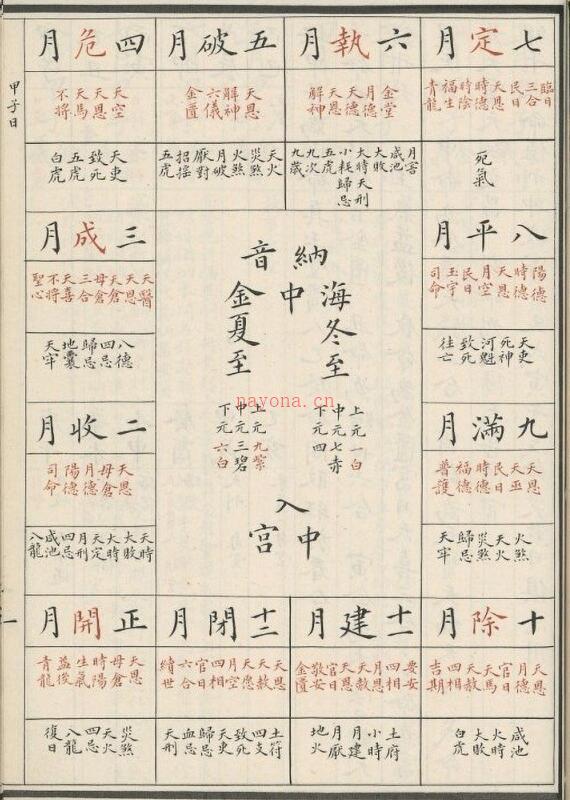 甲子日
七定月
臨日 三合 民日 天恩 時德 時陰 福生 青龍
死氣
六執月
金堂 月德 天德 天恩 解神
月害 咸池 大敗 大時 天刑 小耗 歸忌 五虎 九次 九歲
五破月
天恩 解神 六儀 金匱
天火 災煞 火煞 月破 厭對 招搖 五虎
四危月
天空 天恩 天馬 不將
天吏 致死 五虎 白虎
八平月
陽德 時德 天恩 月空 民日 玉宇 司命
天吏 死神 河魁 致死 往亡
三成月
天醫 天恩 天倉 母倉 三合 天喜 不將 聖心
八德 四忌 歸忌 地囊 天牢
九滿月
天恩 天巫 民日 時德 福德 普護
火煞 天火 災煞 歸忌 天牢
二收月
天恩 母倉 月德 陽德 司命
天時 大敗 大時 天定 月刑 四忌 咸池 八龍
納音
海中金
冬至
夏至
上元一白
中元七赤
下元四
上元九紫
中元三碧
下元六白
入中宮
十除月
天恩 月德 官日 天馬 天赦 四相 吉期
咸池 火時 大敗 白虎
十一建月
要安 四相 月恩 天赦 天恩 官日 敬安 金匱
土府 小時 月建 月厭 地火
十二閉月
天恩 天赦 天愿 月空 四相 官日 六合 續世
土符 四支 致死 天吏 歸忌 血忌 天刑
正開月
天恩 母倉 時陽 生氣 益後 青龍
災煞 天火 四忌 八龍 復日
一
nayona.cn